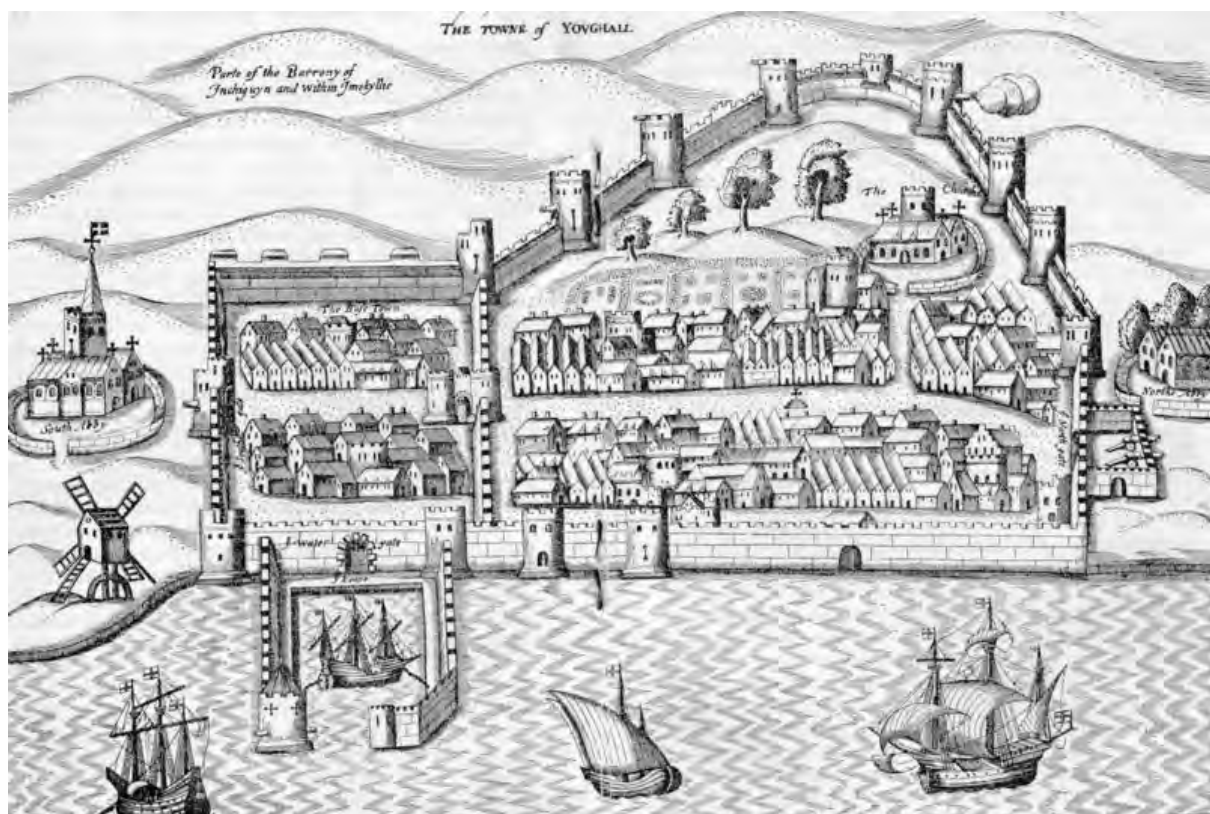 THE TOWNE of YOVGHALL
Parte of the Barrony of
Inchiguyn and within Imokyllie
The
The Base Town
South Abby
Northe Abby
water gate